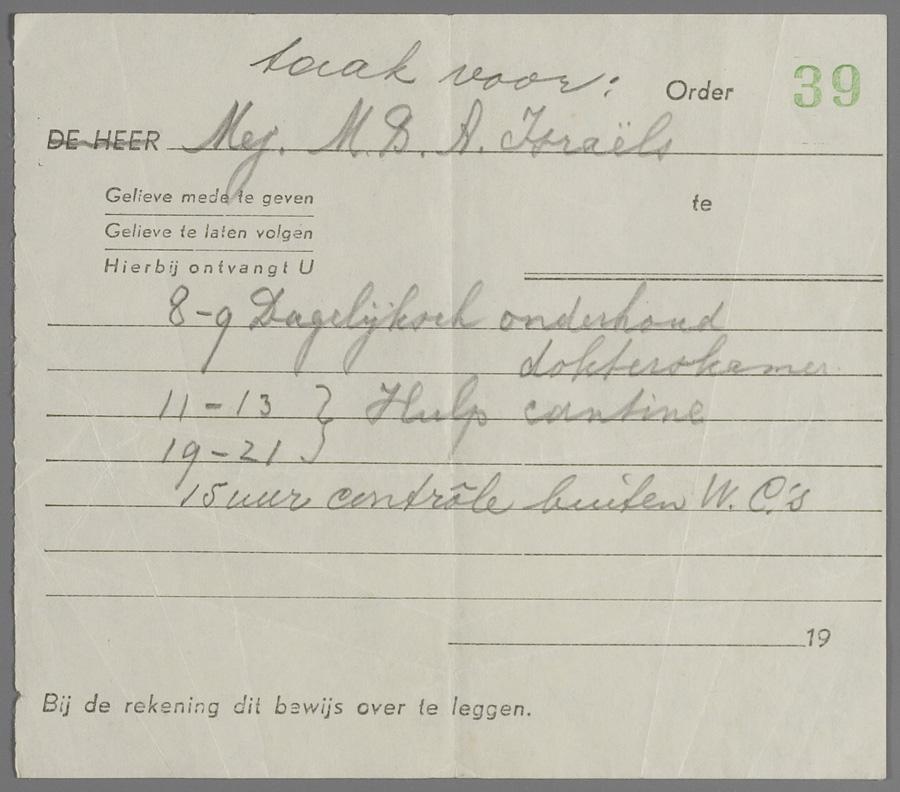 taak voor:
Order 39
DE HEER Mej. M. B. A. Israëls
Gelieve mede te geven
te
Gelieve te laten volgen
Hierbij ontvangt U
8-9 Dagelijksch onderhoud
dokterskamer
11-13 } Hulp cantine
19-21
15 uur contrôle buiten W.C.'s
19
Bij de rekening dit bewijs over te leggen.